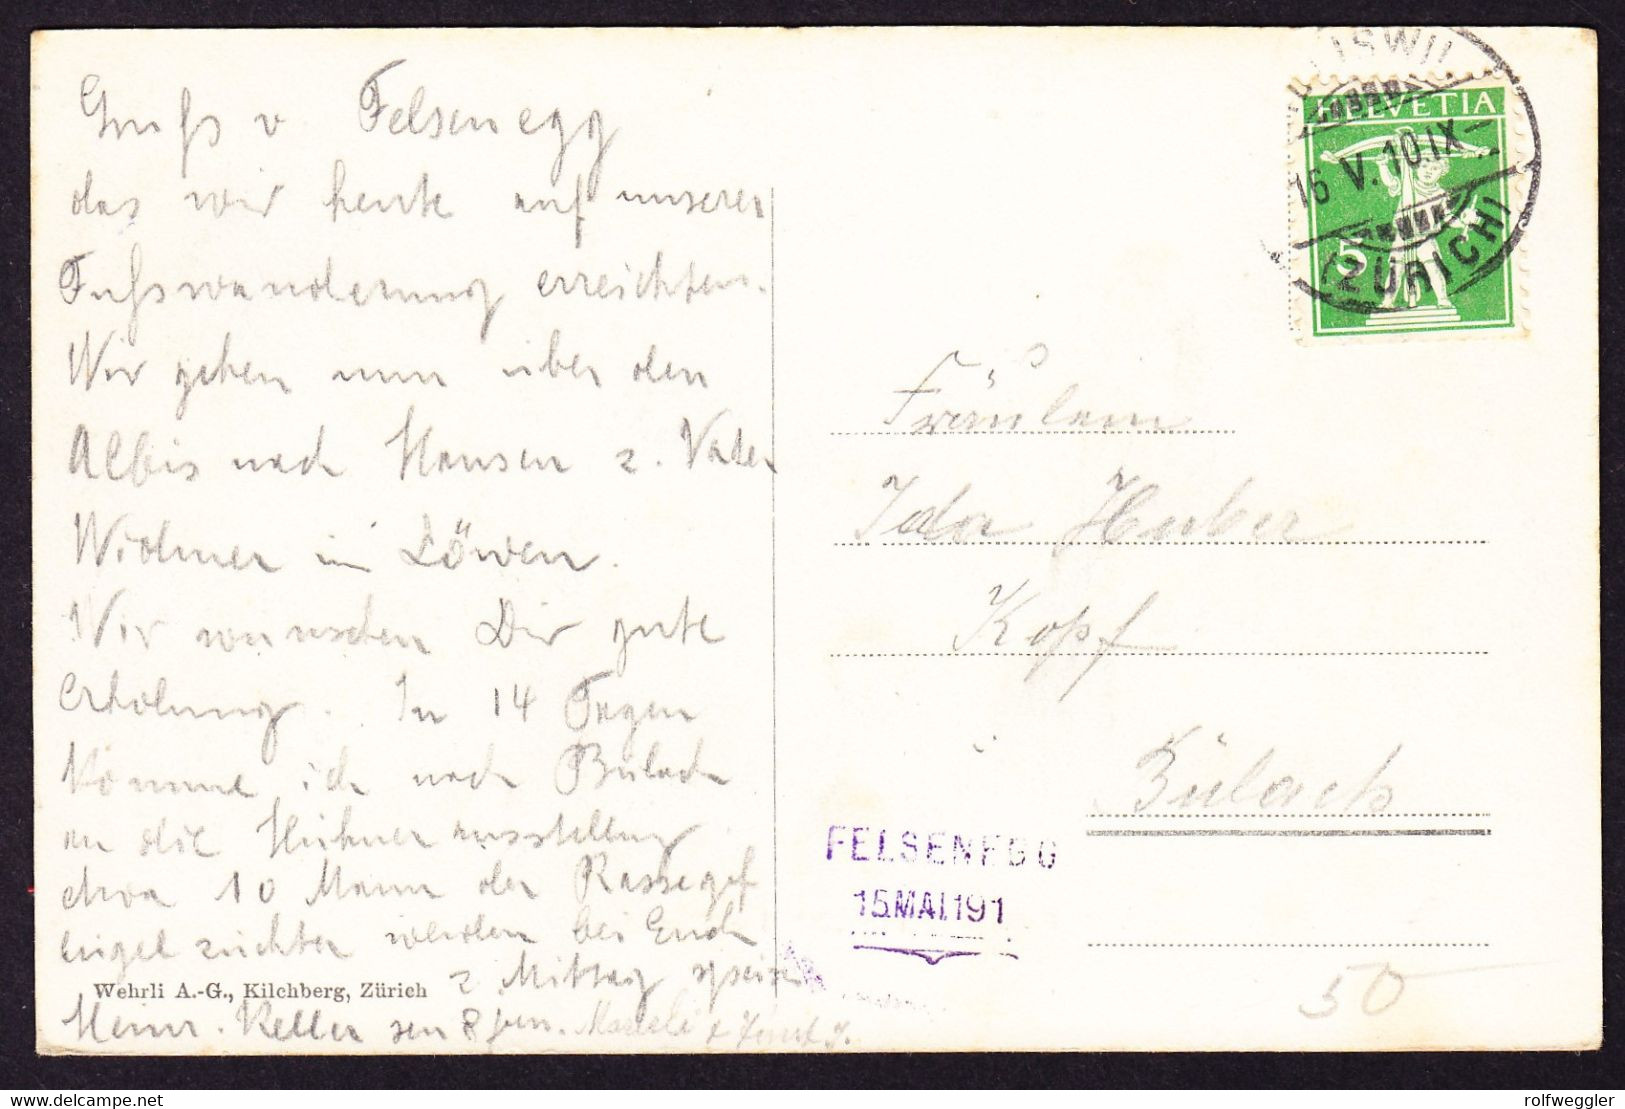 Gruss v Felsenegg
das wir heute auf unserer
Fusswanderung erreichten.
Wir gehen nun über den
Albis nach Hausen z. Vater
Widmer im Löwen.
Wir wünschen Dir gute
Erholung. In 14 Tagen
komme ich nach Bülach
an die Hühnerausstellung
etwa 10 Mann der Rassegef
lügelzüchter werden bei Euch
z Mittag speisen
Heinr. Keller sen
Wehrli A.-G., Kilchberg, Zürich
HELVETIA
5
16 V. 10.IX
(ZÜRICH)
Fräulein
Ida Huber
Kopf
Bülach
FELSENEGG
15.MAI.191
50
rolfweggler
delcampe.net